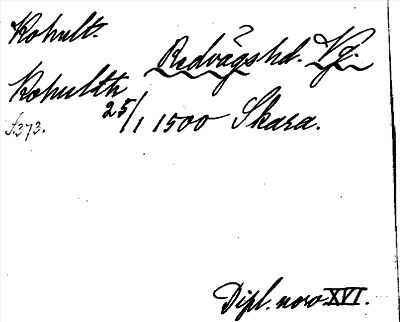 Kohult.
?
Redvägshd. Vg.
Kohulth
25/1 1500 Skara.
S373.
Dipl. norv XVI.